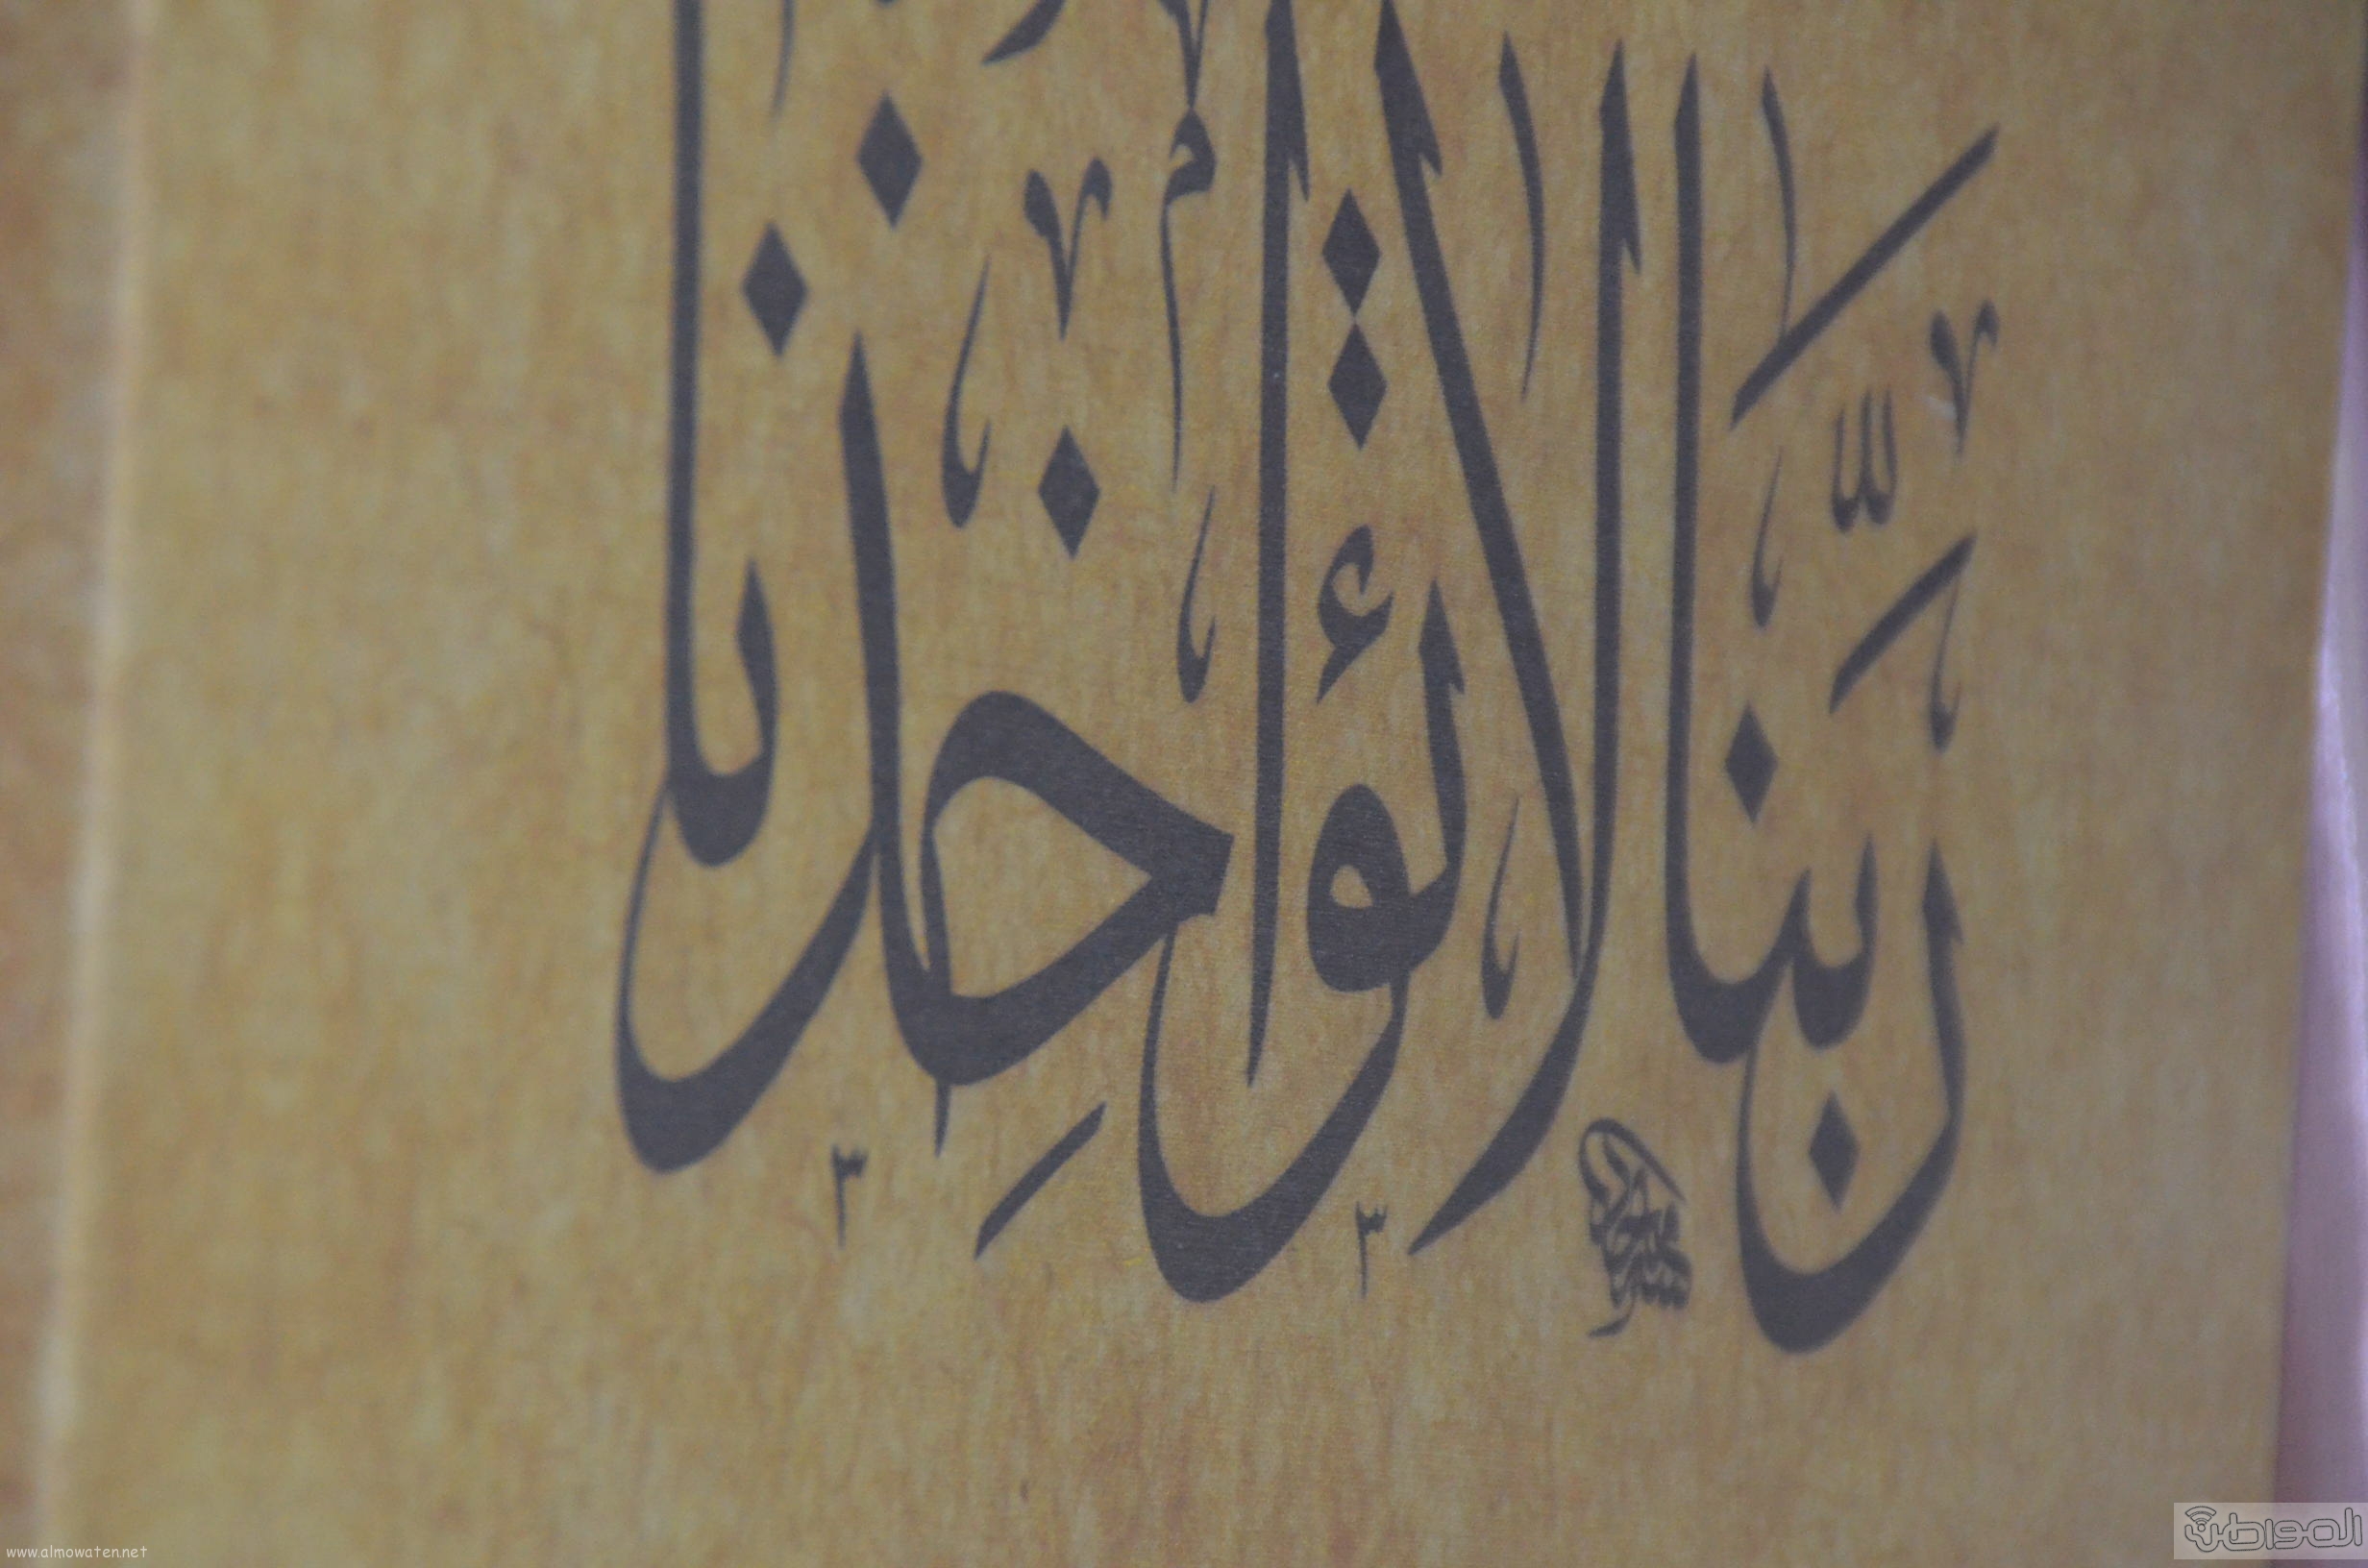 ربنا لا تؤاخذنا
www.almowaten.net
المواطن